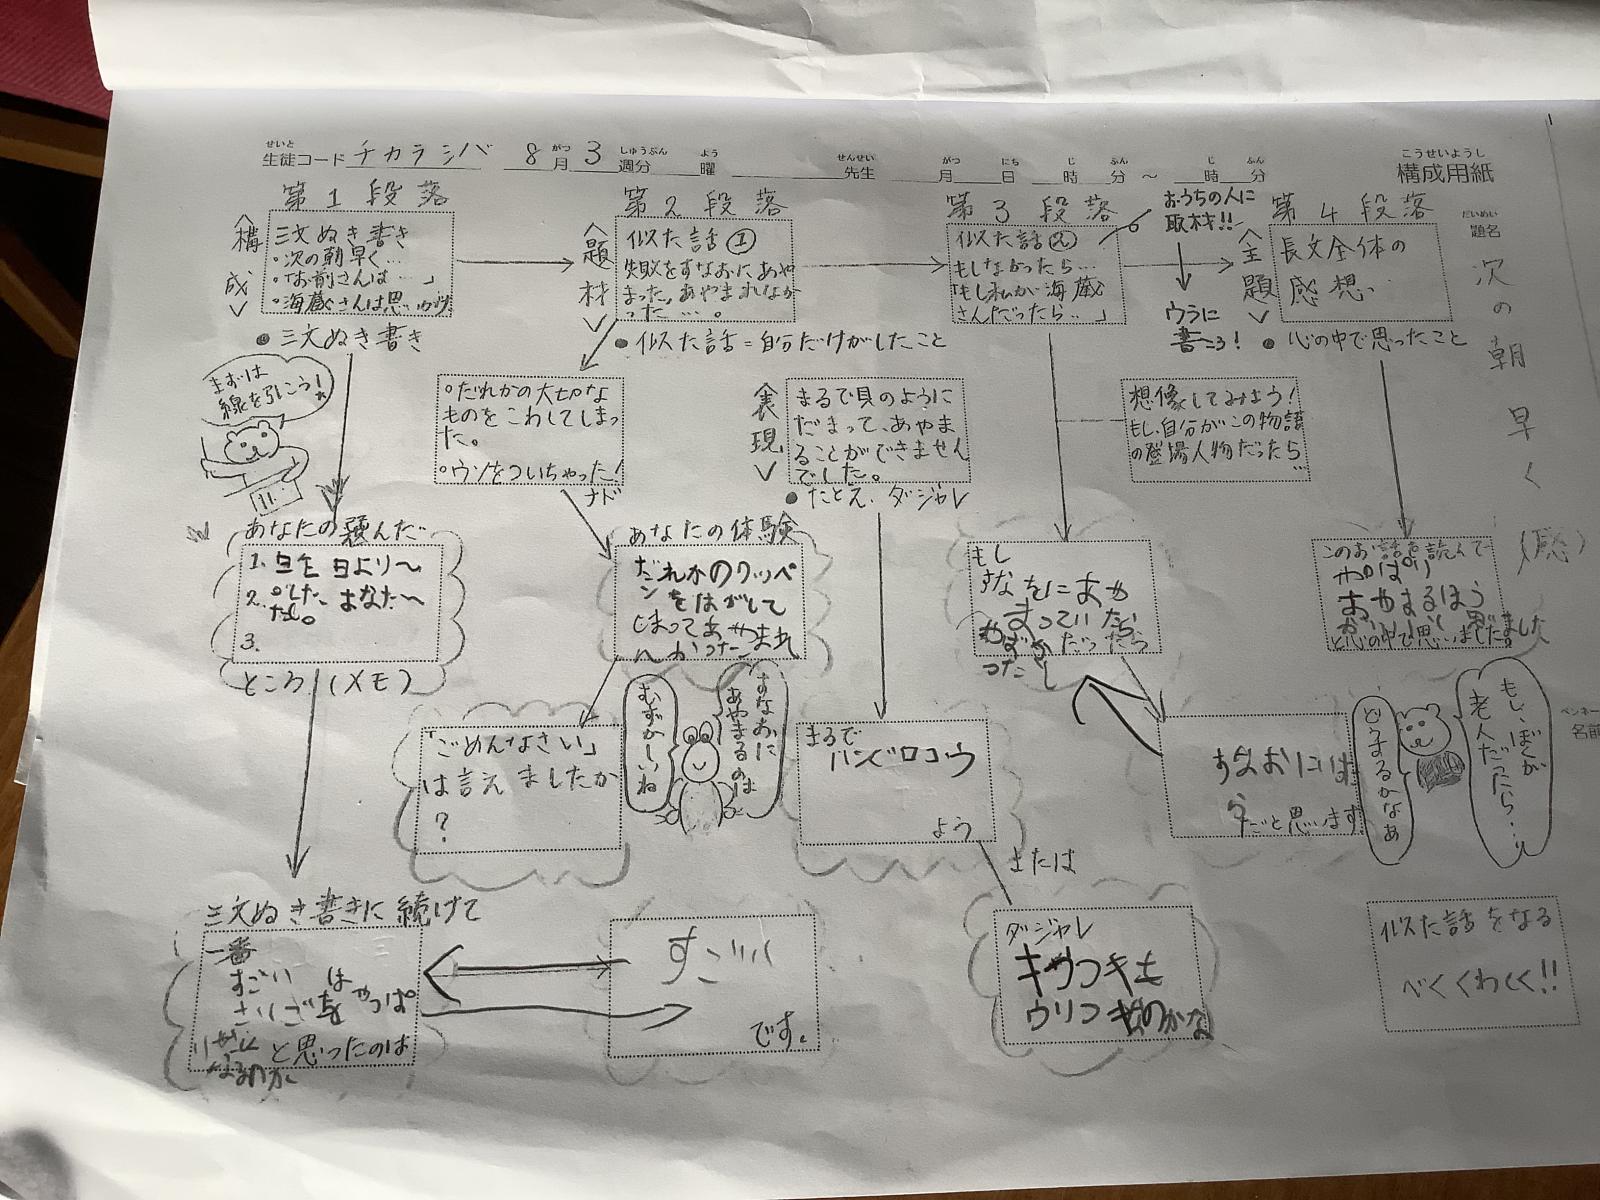 せいと がつ しゅうぶん よう せんせい がつ にち じ ふん じ ふん こうせいようし
生徒コード チカラシバ 8月 3週分 曜 先生 月 日 時 分 ～ 時 分 構成用紙
だいめい
題名
次の朝早く (感)
ペンネー
名前
第1段落
<構成>
三文ぬき書き
・次の朝早く…
・「お前さんは…」
・海蔵さんは思いがけ
●三文ぬき書き
まずは
線を引こう!
あなたの選んだ
1.
2.
3.
ところ (メモ)
三文ぬき書きに続けて
一番
すごい
と思ったのは
すごい
です。
第2段落
<題材>
似た話①
失敗をすなおにあや
まった,あやまれなか
った…。
●似た話=自分だけがしたこと
○だれかの大切な
ものをこわしてしまっ
た。
○ウソをついちゃった!
ナド
あなたの体験
だれかのワッペ
ンをはがして
しまってあやまれ
んかった
「ごめんなさい」
は言えましたか
?
すなおに
あやまるのは
むずかしいね
<表現>
まるで貝のように
だまって、あやま
ることができません
でした。
●たとえ、ダジャレ
まるで
よう
または
ダジャレ
キツツキも
第3段落
似た話②
もしなかったら…
「もし私が海蔵
さんだったら…」
おうちの人に
取材!!
ウラに
書こう!
想像してみよう!
もし、自分がこの物語
の登場人物だったら
…
もし
すなをにあや
まっていたら
だったら
すなおには
ごと思います
第4段落
<主題>
長文全体の
感想…
●心の中で思ったこと
このお話を読んで
やっぱり
あやまるほう
と心の中で思いました。
もし、ぼくが
老人だったら…
どうするかなあ
似た話をなる
べくくわしく!!